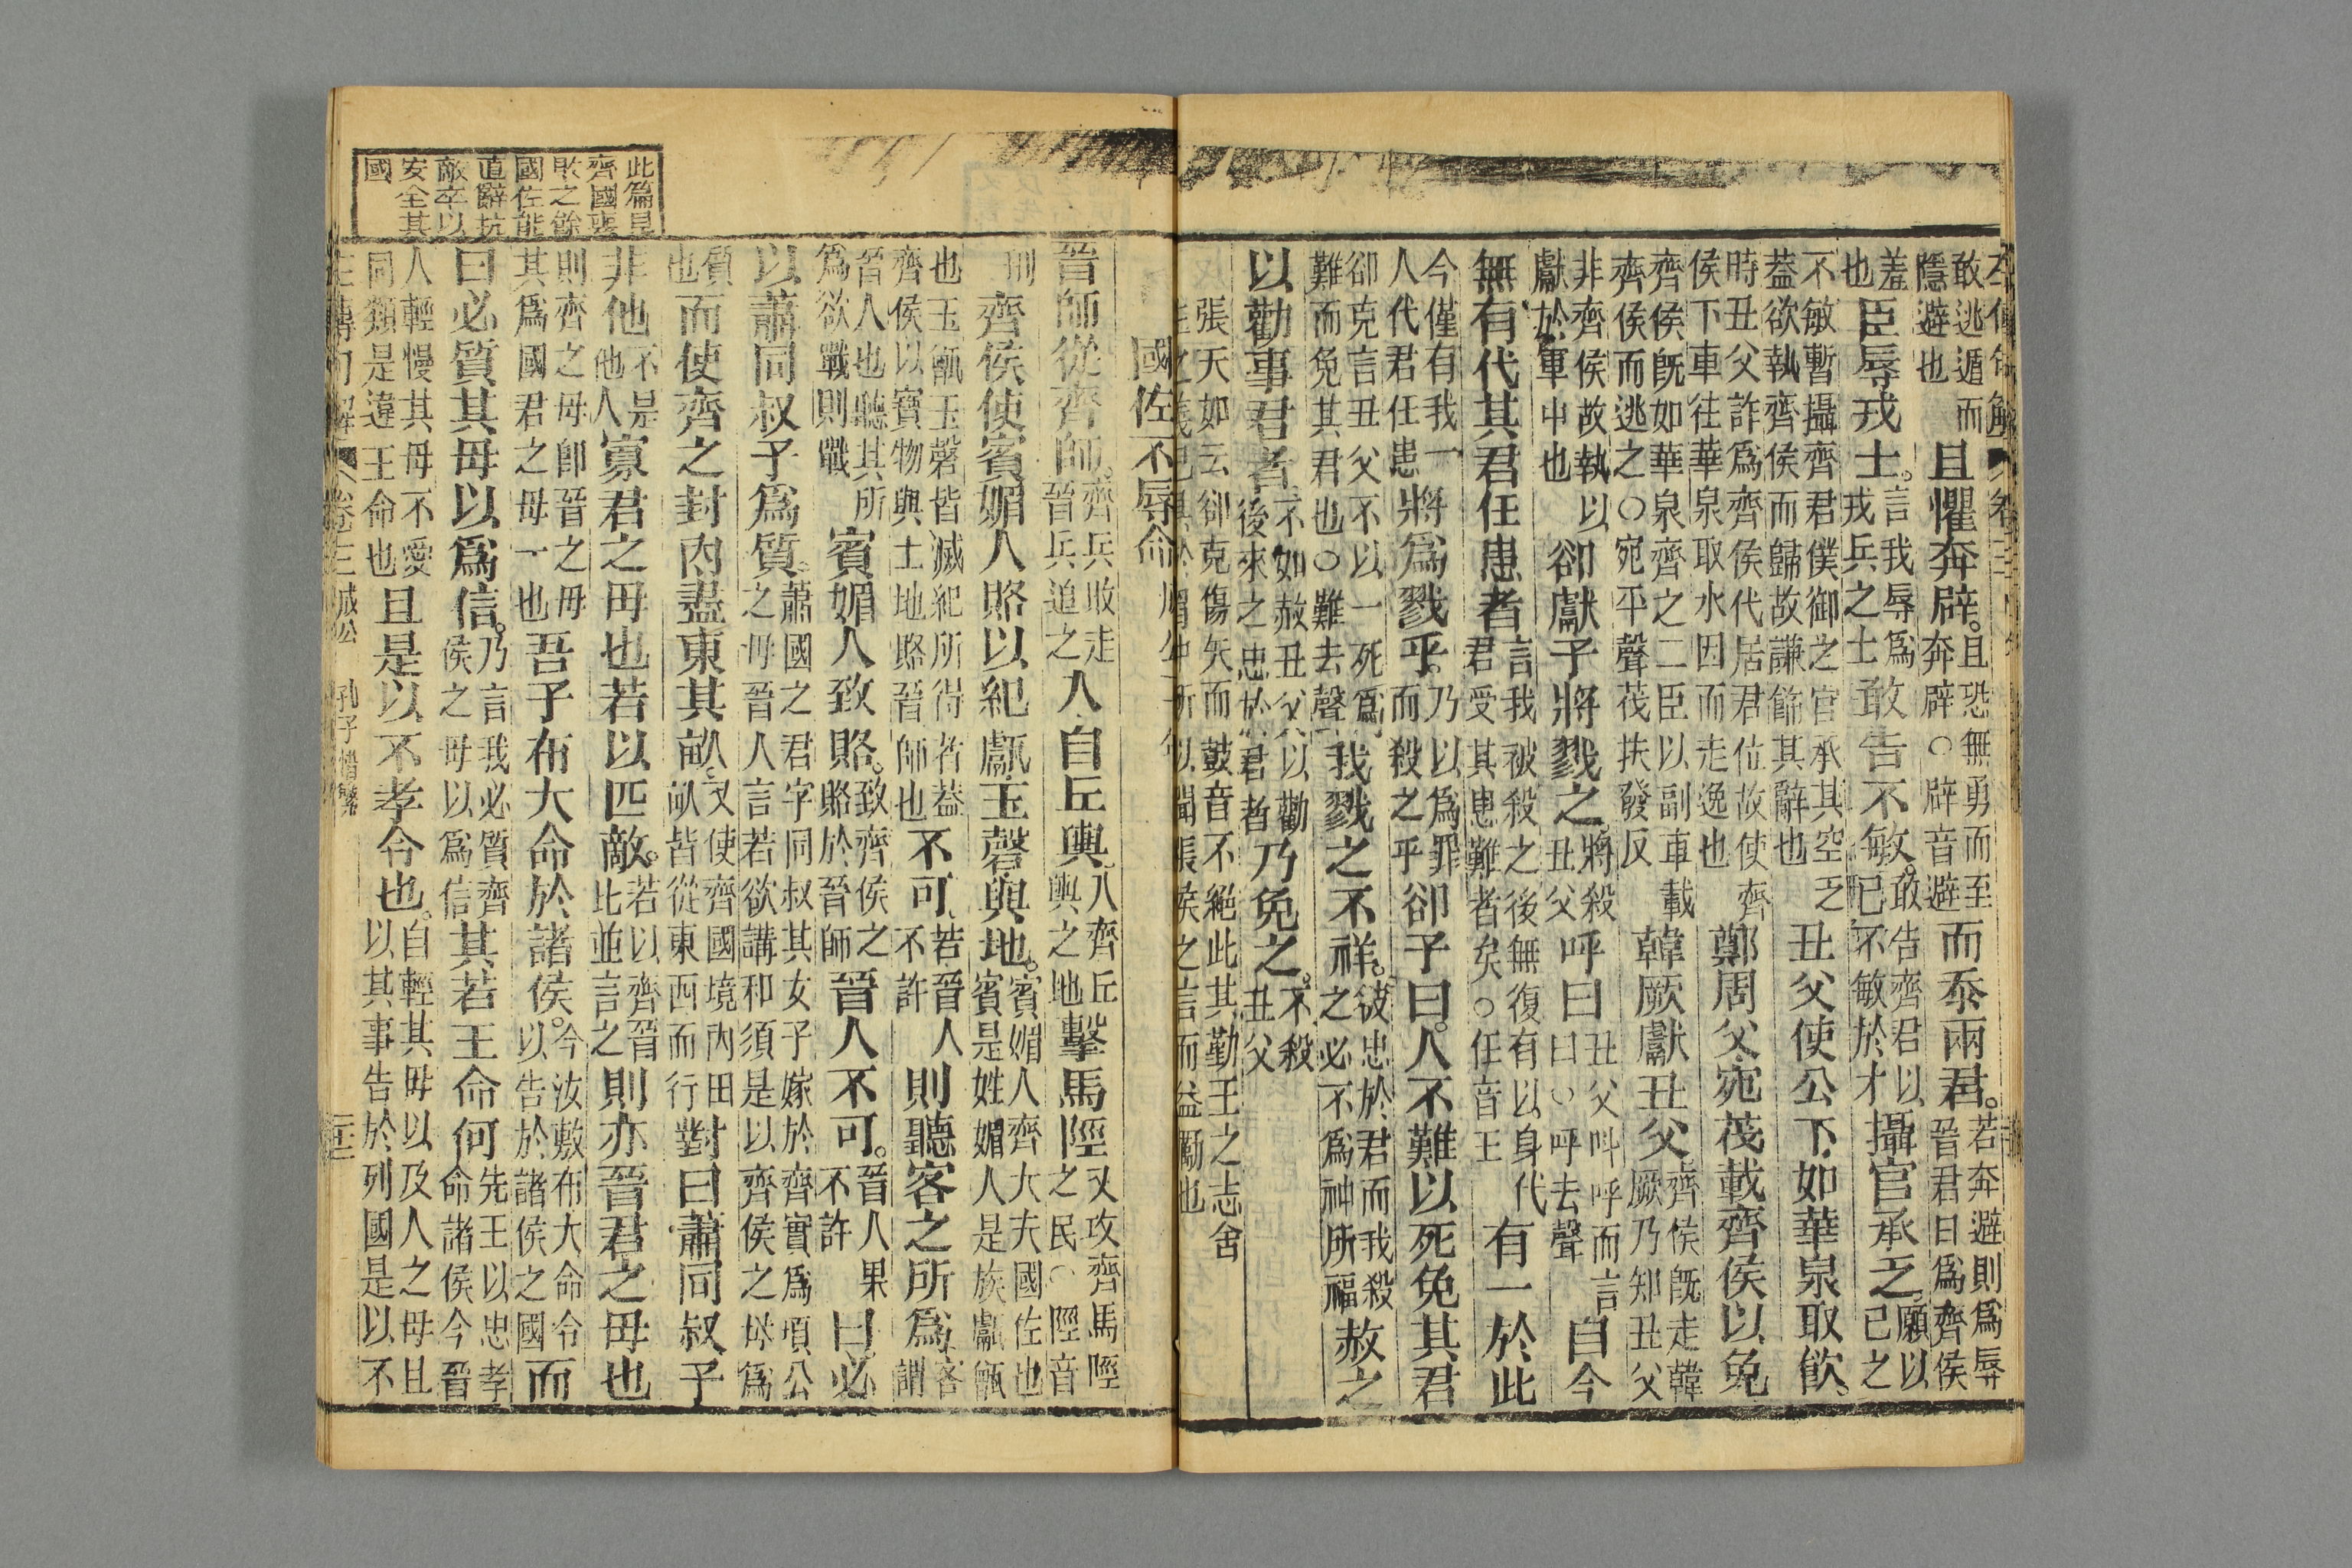 敢逃遁而隱避也且懼奔辟。且恐無勇而至奔辟○辟音避而忝兩君。若奔避則為辱晉君曰為齊侯
羞也臣辱戎士。言我辱為戎兵之士敢告不敏。敢告齊君以己不敏於才攝官承乏。願以己之
不敏暫攝齊君僕御之官承其空乏蓋欲執齊侯而歸故謙飾其辭也丑父使公下如華泉取飲。
時丑父詐為齊侯代居君位故使齊侯下車往華泉取水因而走逸也鄭周父宛茷載齊侯以免
齊侯既如華泉齊之二臣以副車載齊侯而逃之○宛平聲茷扶發反韓厥獻丑父齊侯既走韓厥乃知丑父
非齊侯故執以獻於軍中也郤獻子將戮之將殺丑父呼曰丑父呌呼而言曰○呼去聲自今
無有代其君任患者言我被殺之後無復有以身代君受其患難者矣○任音壬有一於此
今僅有我一人代君任患將為戮乎。乃以為罪而殺之乎郤子曰。人不難以死免其君
郤克言丑父不以一死為難而免其君也○難去聲我戮之不祥。彼忠於君而我殺之必不為神所福赦之
以勸事君者不如赦丑父以勸後來之忠於君者乃免之。不殺丑父
張天如云郤克傷矢而鼓音不絕此其勤王之志舍生之義已與於所以聞張侯之言而益勵也
國佐不辱命
晉師從齊師。齊兵敗走晉兵追之入自丘輿入齊丘輿之地擊馬陘又攻齊馬陘之民○陘音
刑齊侯使賓媚人賂以紀甗玉磬與地。賓媚人齊大夫國佐也賓是姓媚人是族甗甑
也玉甑玉磬皆滅紀所得者蓋齊侯以寶物與土地賂晉師也不可若晉人不許則聽客之所為客謂
晉人也聽其所為欲戰則戰賓媚人致賂。致齊侯之賂於晉師晉人不可。晉人果不許曰必
以蕭同叔子為質。蕭國之君字同叔其女子嫁於齊實為頃公之母晉人言若欲講和須是以齊侯之母為
質也而使齊之封內盡東其畝。又使齊國境內田畝皆從東西而行對曰蕭同叔子
非他不是他人寡君之母也若以匹敵。若以齊晉比並言之則亦晉君之母也
則齊之母即晉之母其為國君之母一也吾子布大命於諸侯。今汝敷布大命令以告於諸侯之國而
曰必質其母以為信。乃言我必質齊侯之母以為信其若王命何先王以忠孝命諸侯今晉
人輕慢其母不愛同類是違王命也且是以不孝令也。自輕其母以及人之母且以其事告於列國是以不
此篇見齊國喪敗之餘國佐能直辭抗敵卒以安全其國
左傳句解 卷三 成公